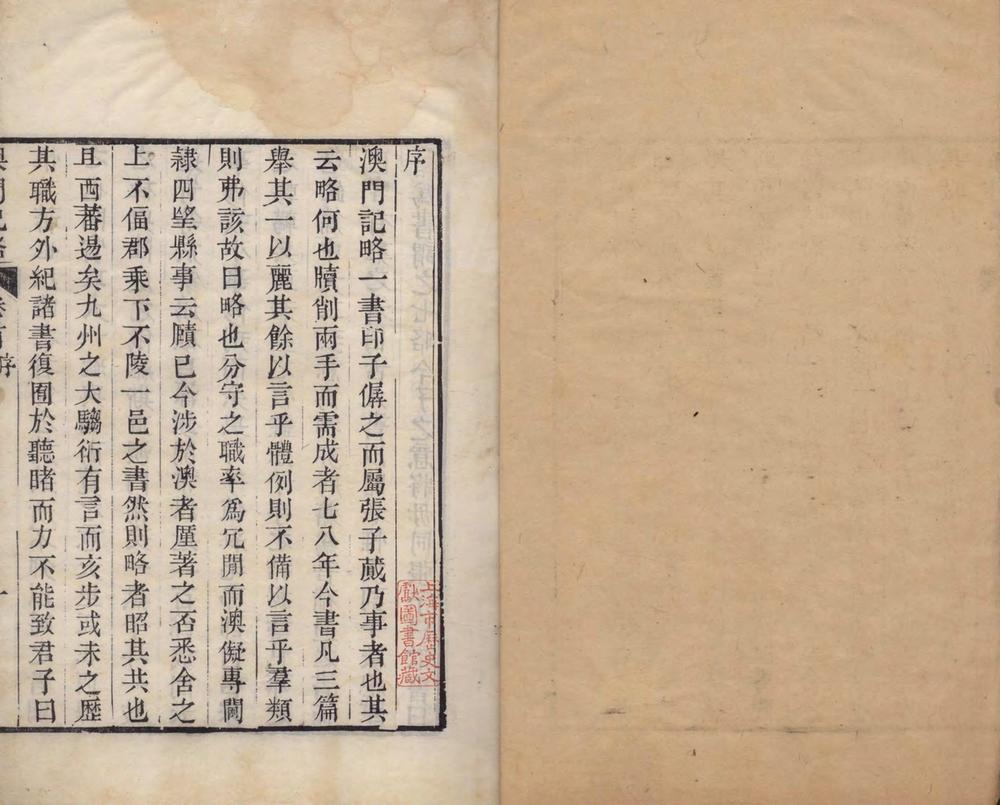 序
澳門記略一書印子僝之而屬張子蕆乃事者也其
云略何也牘削兩手而需成者七八年今書凡三篇
舉其一以麗其餘以言乎體例則不備以言乎羣類
則弗該故曰略也分守之職率爲冗閒而澳儗專閫
隷四堃縣事云賾已今涉於澳者厪著之否悉舍之
上不偪郡乘下不陵一邑之書然則略者昭其共也
且西蕃逷矣九州之大騶衍有言而亥步或未之歴
其職方外紀諸書復囿於聽睹而力不能致君子曰
序
上海市歷史文
獻圖書館藏